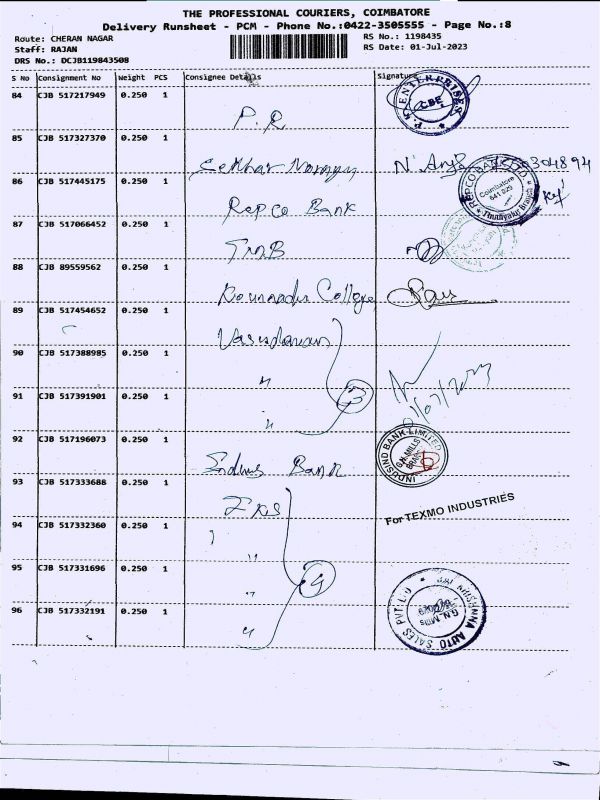 THE PROFESSIONAL COURIERS, COIMBATORE
Delivery Runsheet - PCM - Phone No.:0422-3505555 - Page No.:8
Route: CHERAN NAGAR
Staff: RAJAN
DRS No.: DCJB119843508
RS No.: 1198435
RS Date: 01-Jul-2023
S No Consignment No Weight PCS Consignee Details Signature
84 CJB 517217949 0.250 1
P.R
P.K ENTERPRISES
CBE
85 CJB 517327370 0.250 1
Sekhar
86 CJB 517445175 0.250 1
Repco Bank
REPCO BANK LTD.
Coimbatore
641 029
* Thudiyalur Branch *
87 CJB 517066452 0.250 1
TMB
88 CJB 89559562 0.250 1
College
89 CJB 517454652 0.250 1
Vasudevan
90 CJB 517388985 0.250 1
"
91 CJB 517391901 0.250 1
"
3
92 CJB 517196073 0.250 1
Indus Bank
INDUSIND BANK LIMITED
G.N. MILLS
BRANCH
93 CJB 517333688 0.250 1
For TEXMO INDUSTRIES
94 CJB 517332360 0.250 1
"
95 CJB 517331696 0.250 1
"
4
96 CJB 517332191 0.250 1
"
SAI KRISHNNA AUTO SALES PVT LTD
G.N. Mills